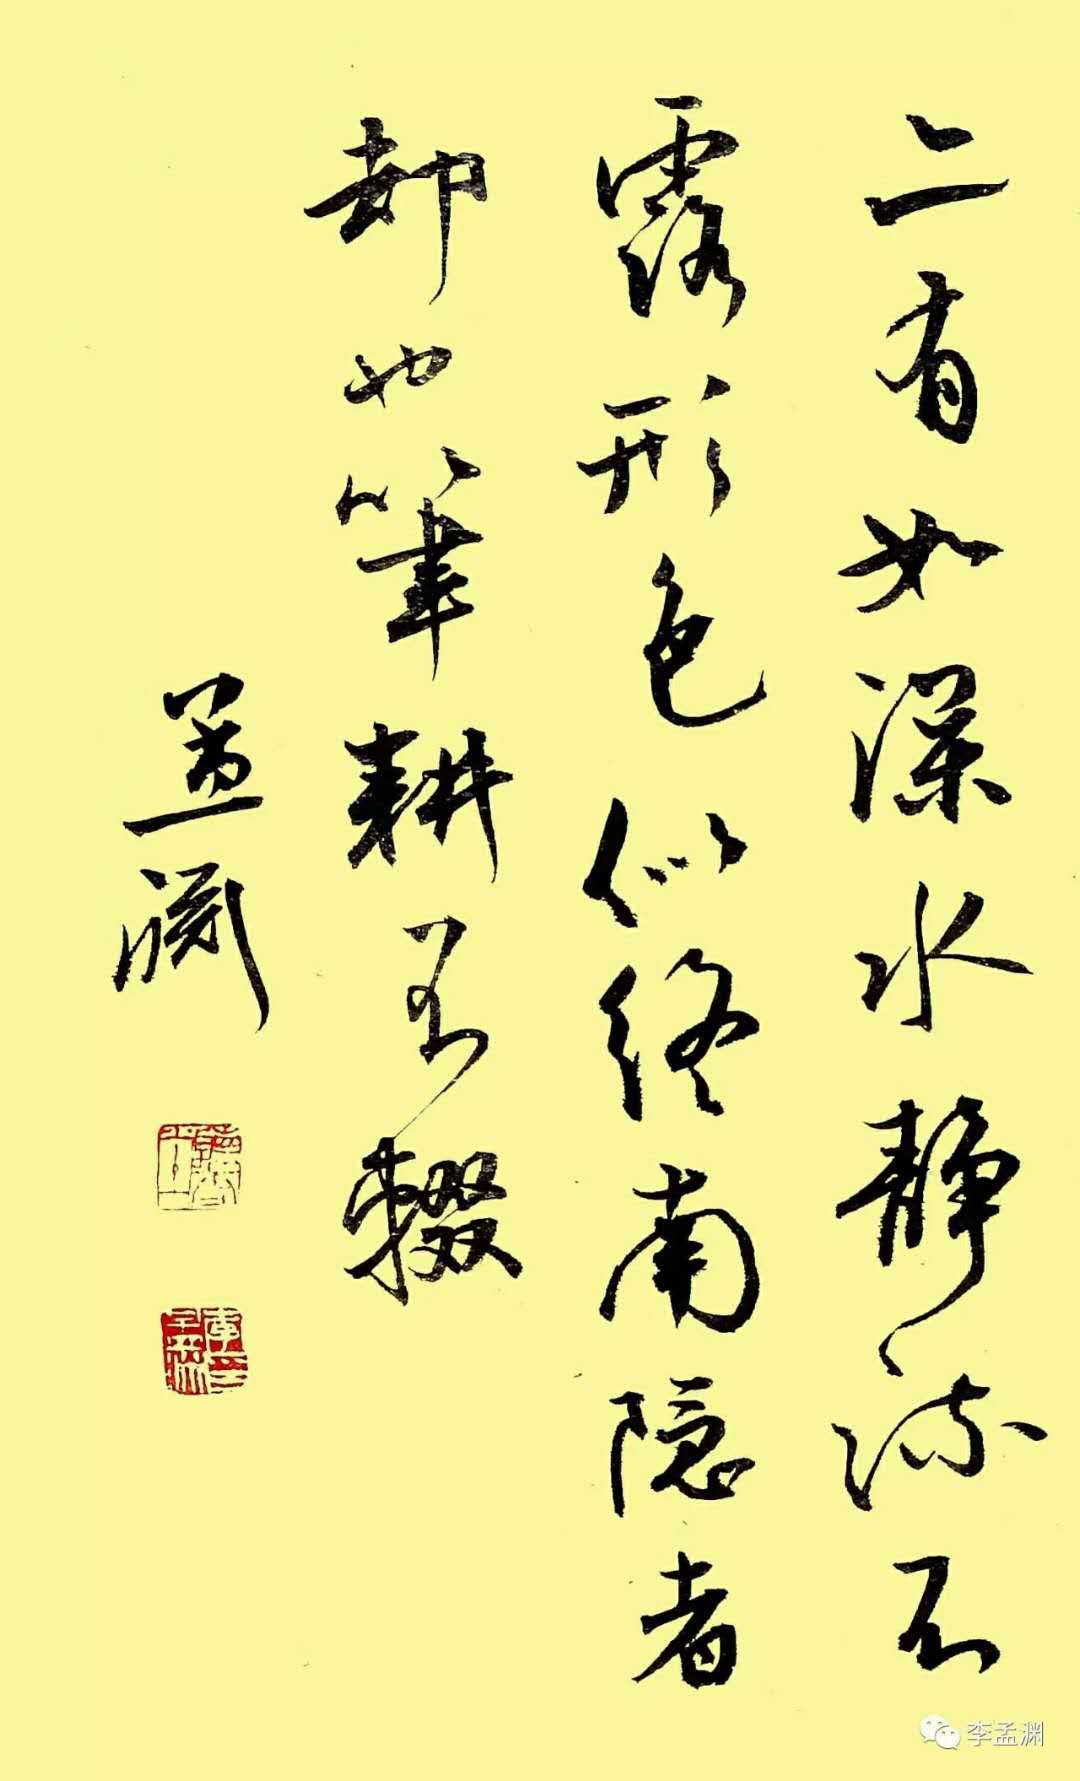 二有如深水静流不
露形色似终南隐者
却也筆耕不辍
孟渊
李孟渊